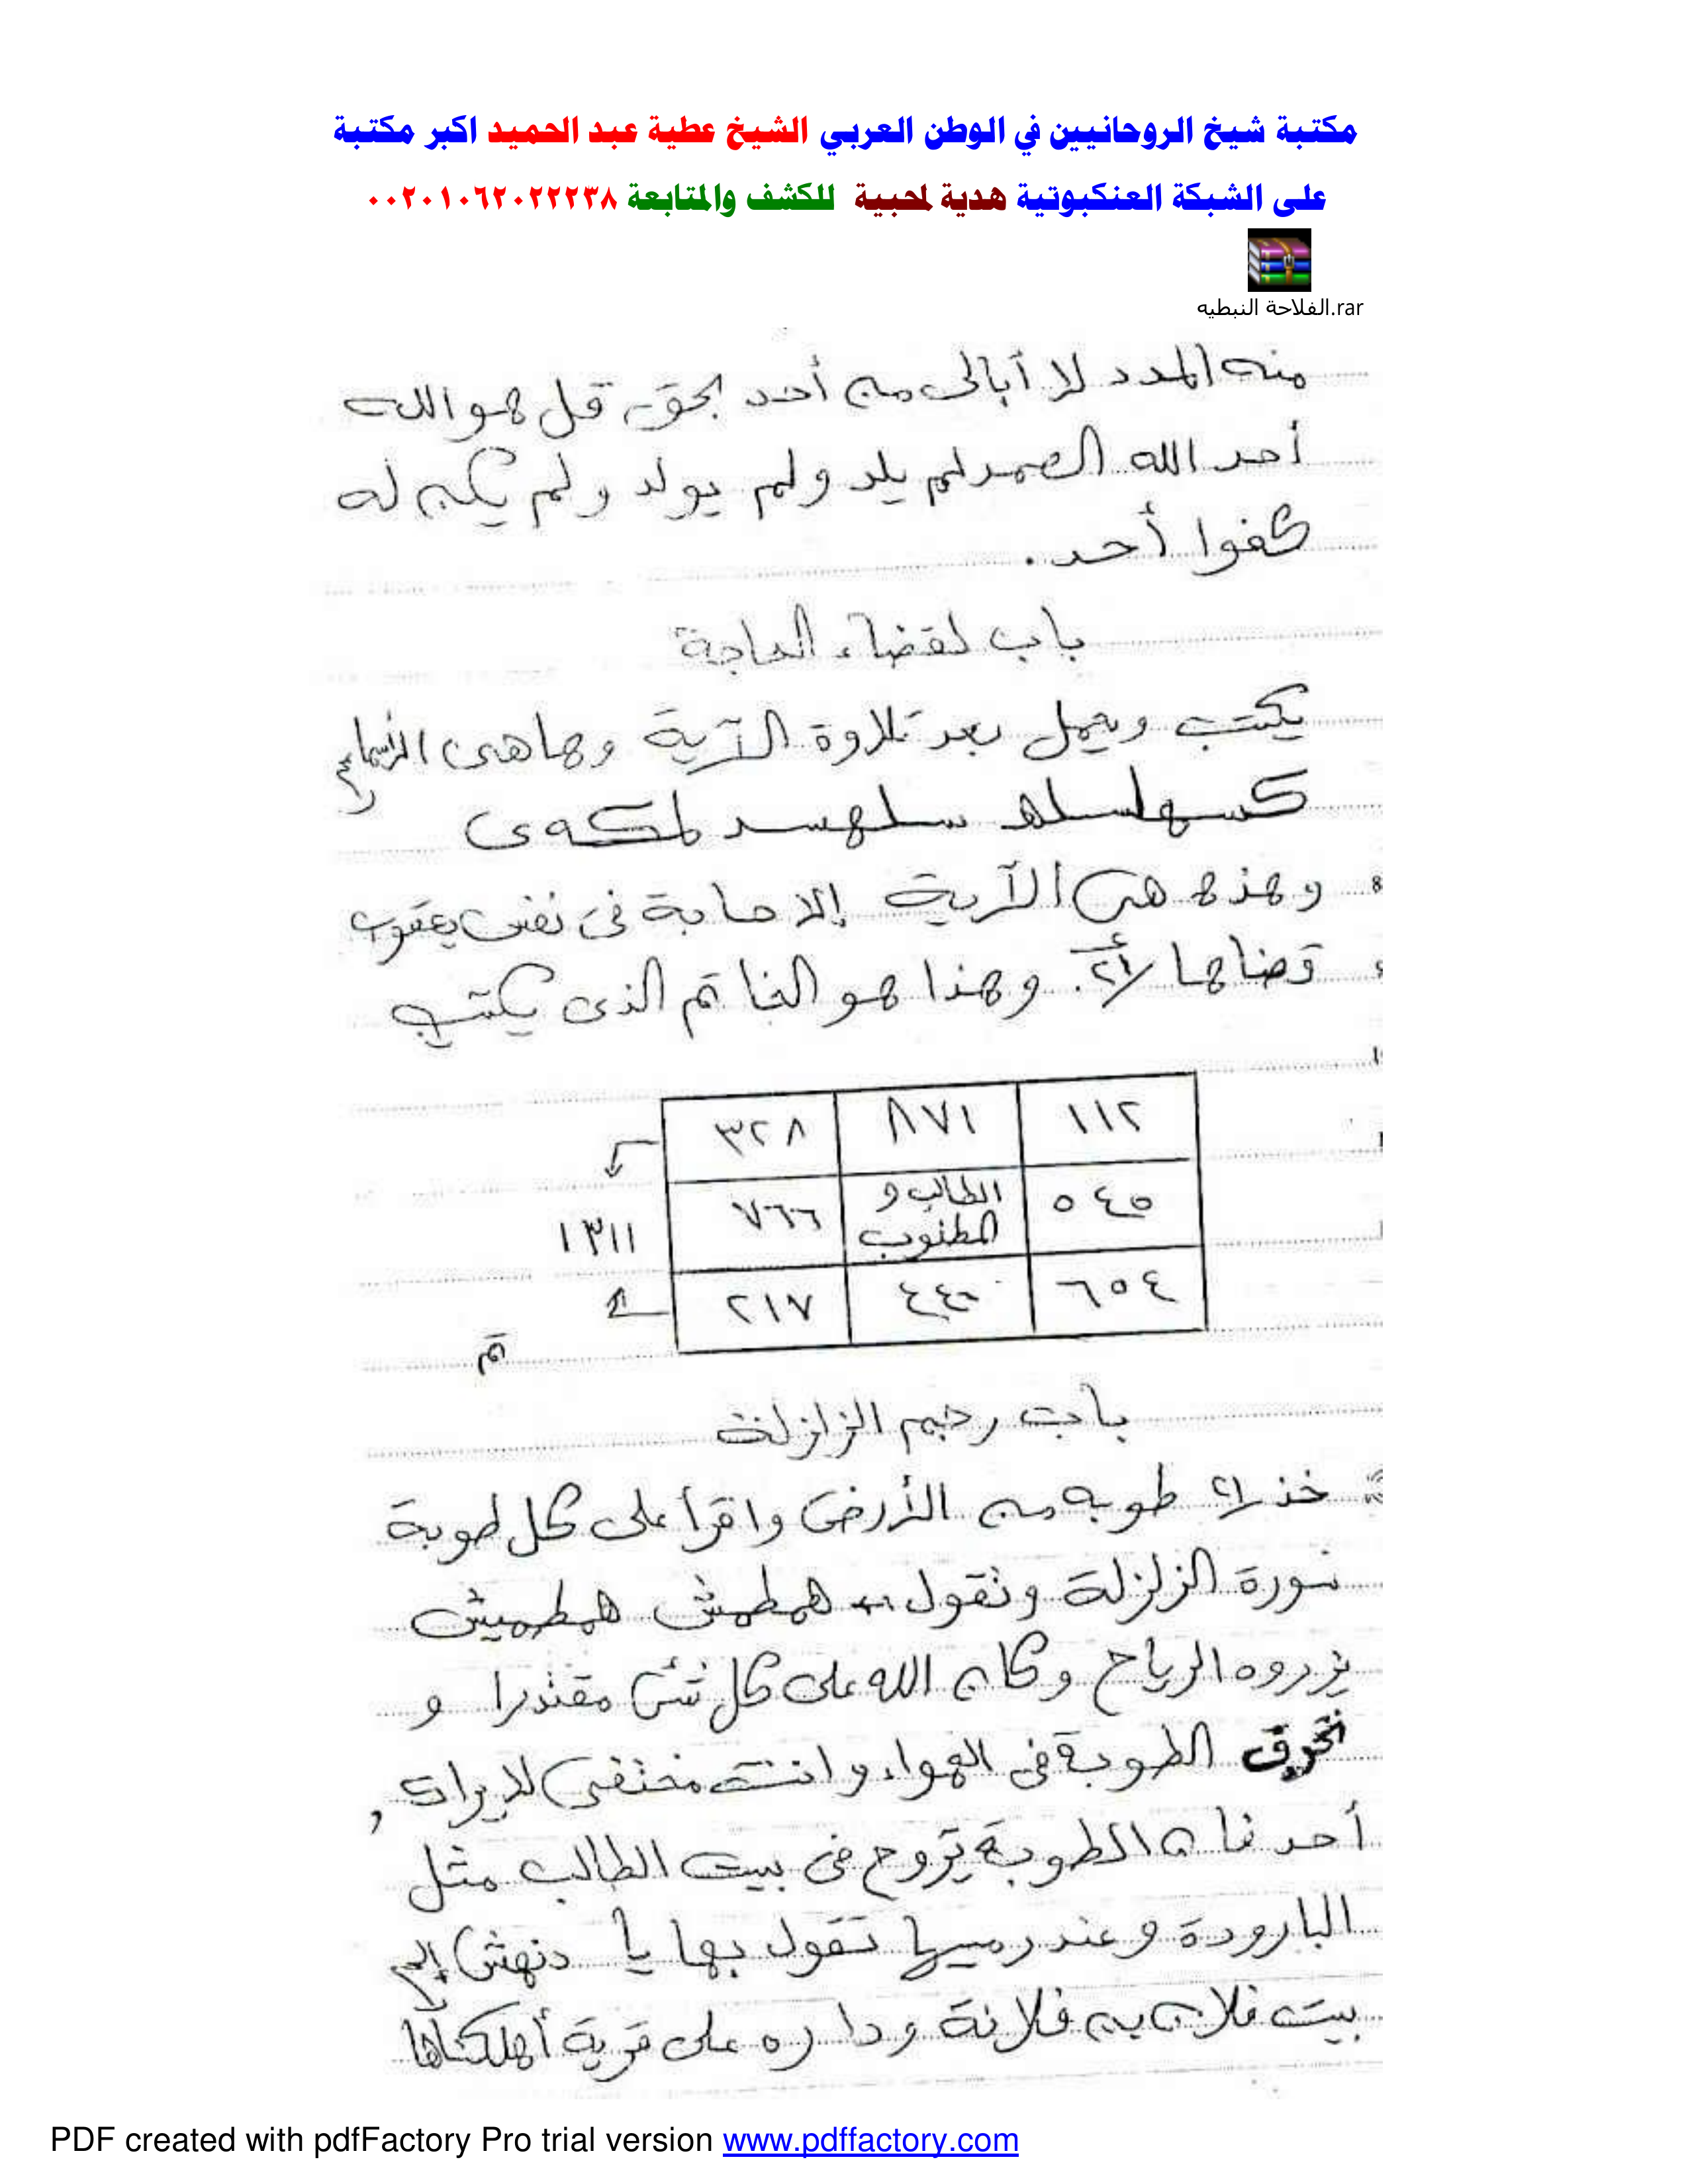 مكتبة شيخ الروحانيين في الوطن العربي الشيخ عطية عبد الحميد اكبر مكتبة
على الشبكة العنكبوتية هدية لمحبية للكشف والمتابعة ٠٠٢٠١٠٦٢٠٢٢٢٣٨
الفلاحة النبطيه.rar
منه المدد لا أبالى من أحد بحق قل هو الله
أحد الله الصمد لم يلد ولم يولد ولم يكن له
كفوا أحد.
باب لقضاء الحاجة
يكتب ويحمل بعد تلاوة الآية وها هى الأسماء
كسهلسله سلهسد
وهذه هى الآية إلا حاجة فى نفس يعقوب
قضاها وهذا هو الخاتم الذى يكتب
١١٢ ٨٧١ ٣٢٨
٥٤٥ الطالب و المطلوب ٧٦٦
١٣١١
٦٥٤ ٢١٧
تم
باب رجم الزلزلة
خذ طوبه من الأرض واقرأ على كل طوبة
سورة الزلزلة وتقول همطمش همطميش
يزروه الرياح وكان الله على كل شئ مقتدرا و
الطوبة فى الهواء وانت مختفى لا يراك
أحد فان الطوبة تروح فى بيت الطالب مثل
البارودة وعند رميها تقول بها يا دنهش إلى
بيت فلان بن فلانة وداره على قرية أهلكناها
PDF created with pdfFactory Pro trial version www.pdffactory.com